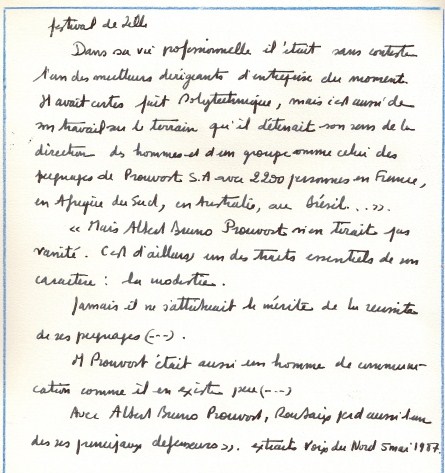 festival de Lille
Dans sa vie professionnelle il était sans conteste
l'un des meilleurs dirigeants d'entreprise du moment.
Il avait certes fait Polytechnique, mais c'est aussi de
son travail sur le terrain qu'il détenait son sens de la
direction des hommes et d'un groupe comme celui des
peignages de Prouvost S.A avec 2250 personnes en France,
en Afrique du Sud, en Australie, au Brésil...».
« Mais Albert Bruno Prouvost n'en tirait pas
vanité. C'est d'ailleurs un des traits essentiels de son
caractère : la modestie.
Jamais il ne s'attribuait le mérite de la réussite
de ses peignages (---).
M Prouvost était aussi un homme de communi-
cation comme il en existe peu (---)
Avec Albert Bruno Prouvost, Roubaix perd aussi l'un
des ses principaux defenseurs». extraits Voix du Nord 5 mai 1987.